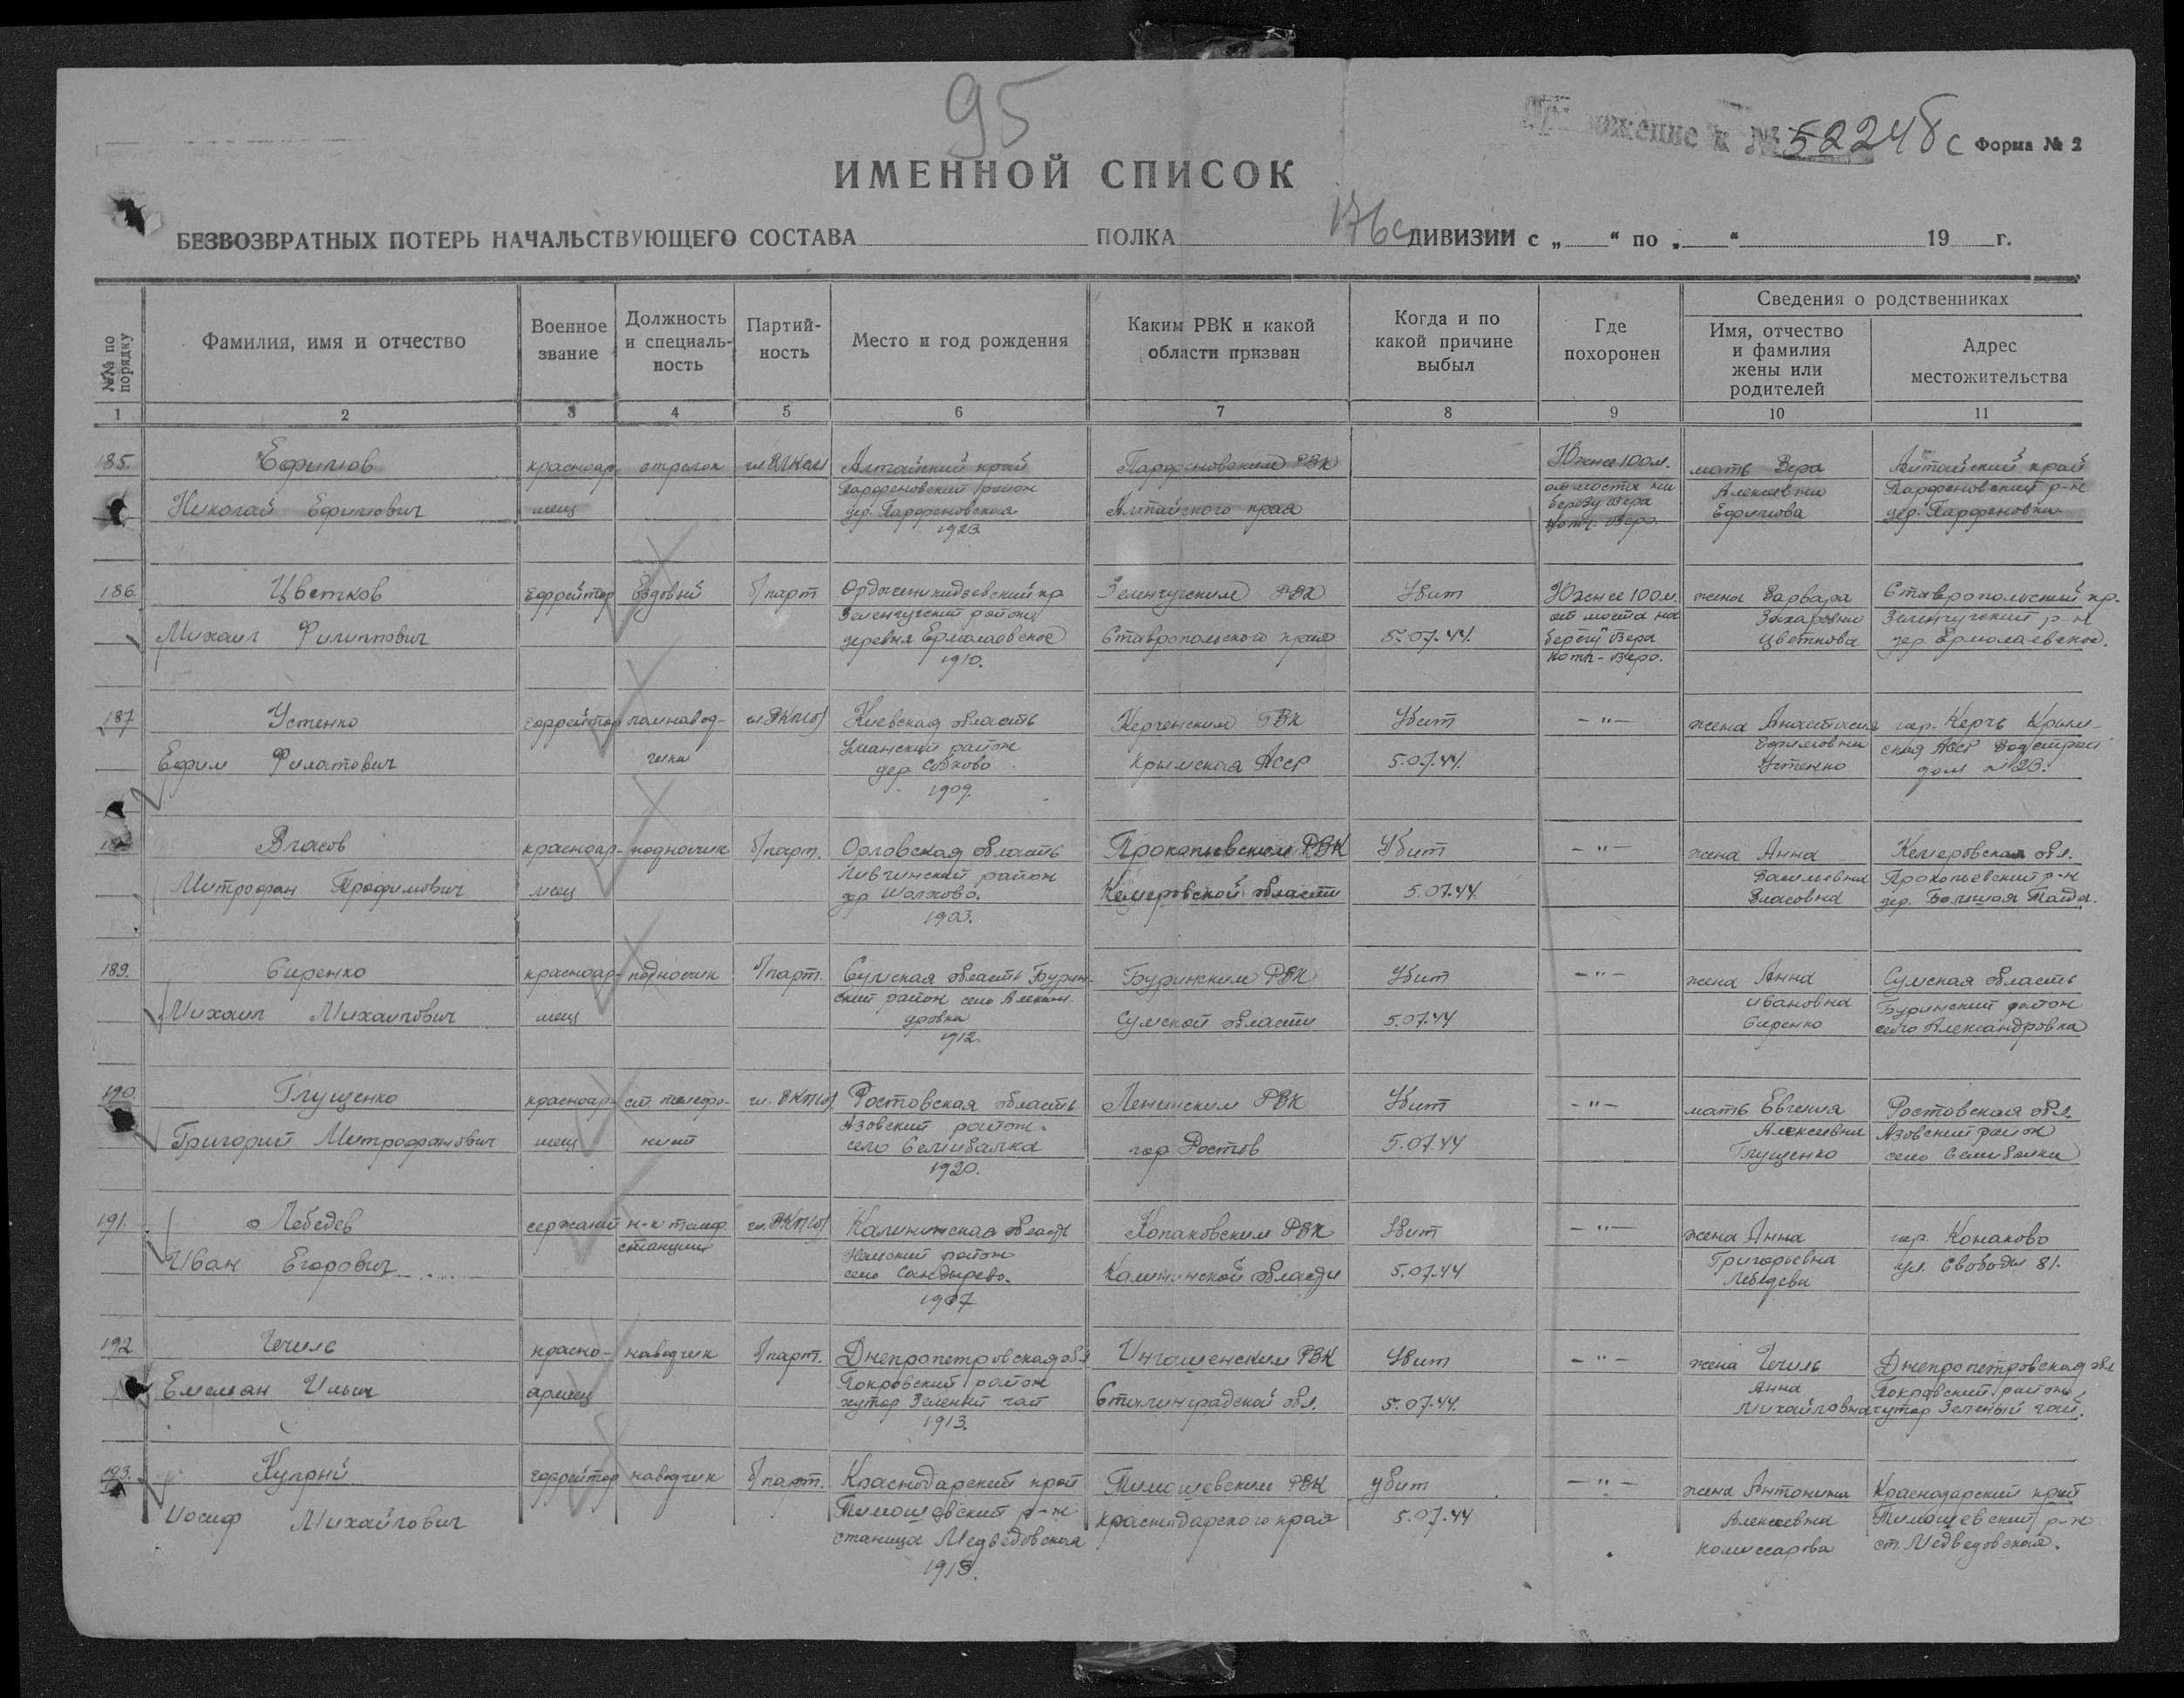 95
Приложение к № 52248с Форма № 2
ИМЕННОЙ СПИСОК
БЕЗВОЗВРАТНЫХ ПОТЕРЬ НАЧАЛЬСТВУЮЩЕГО СОСТАВА ПОЛКА 176с ДИВИЗИИ с „ “ по „ “ 19 г.
№№ по порядку
Фамилия, имя и отчество
Военное звание
Должность и специальность
Партийность
Место и год рождения
Каким РВК и какой области призван
Когда и по какой причине выбыл
Где похоронен
Сведения о родственниках
Имя, отчество и фамилия жены или родителей
Адрес местожительства
1 2 3 4 5 6 7 8 9 10 11
185. Ефимов красноар- стрелок чл ВЛКСМ Алтайский край Парфеновским РВК Южнее 100 м. мать Вера Алтайский край
Парфеновский район от моста на Алексеевна Парфеновский р-н
Николай Ефимович меец дер. Парфеновская Алтайского края берегу озера Ефимова дер. Парфеновка
1923 Котч-Озеро.
186. Цветков Ефрейтор Ездовый б/парт Орджоникидзевский кр Зеленчугским РВК Убит Южнее 100 м. жена Варвара Ставропольский кр.
Зеленчугский район от моста на Захаровна Зеленчугский р-н
Михаил Филиппович деревня Ермолаевское Ставропольского края 5.07.44. берегу озера Цветкова дер. Ермолаевское.
1910. Котч-Озеро.
187 Устенко ефрейтор помнавод- чл ВКП(б) Киевская область Керченским РВК Убит -"- жена Анастасия гор. Керчь Крым-
Уманский район Ефимовна ская АССР
Ефим Филатович чика дер. Собково Крымская АССР 5.07.44. Устенко дом №23.
1909.
Власов красноар- подносчик б/парт. Орловская область Прокопьевским РВК Убит -"- жена Анна Кемеровская обл.
Ливенский район Васильевна Прокопьевский р-н
Митрофан Трофимович меец дер. Кемеровской области 5.07.44. Власовна дер. Большая Талда.
1903.
189. Сиренко красноар- подносчик б/парт. Сумская область Бурин- Буринским РВК Убит -"- жена Анна Сумская область
ский район село Алексан- Ивановна Буринский район
Михаил Михайлович меец дровка Сумской области 5.07.44 Сиренко село Александровка
1912.
190. Глущенко красноар- ст. телефо- чл. ВКП(б) Ростовская область Ленинским РВК Убит -"- мать Евгения Ростовская обл.
Азовский район. Алексеевна Азовский район
Григорий Митрофанович меец нист село Семибалка гор Ростов 5.07.44 Глущенко село Семибалки
1920.
191. Лебедев сержант н-к телеф. чл. ВКП(б) Калининская область Конаковским РВК Убит -"- жена Анна гор. Конаково
станции район Григорьевна ул. Свободы 81.
Иван Егорович село Сандырево. Калининской области 5.07.44 Лебедева
1907
192 Чечиль красно- наводчик б/парт. Днепропетровская обл Убит -"- жена Чечиль Днепропетровская обл
Покровский район Анна Покровский район
Емельян Ильич армеец хутор Зеленый гай Сталинградской обл. 5.07.44. Михайловна хутор Зеленый гай.
1913.
193. Куприй ефрейтор наводчик б/парт. Краснодарский край Тимошевским РВК убит -"- жена Антонина Краснодарский край
Тимошевский р-н Алексеевна Тимошевский р-н
Иосиф Михайлович станица Медведовская Краснодарского края 5.07.44 Комиссарова ст. Медведовская.
1913.